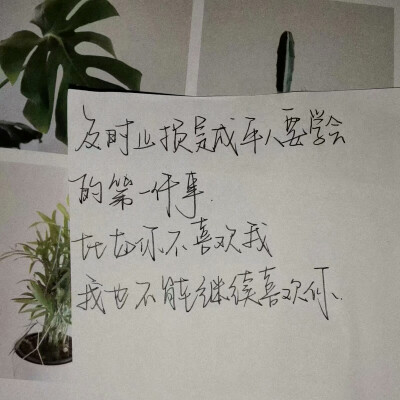 及时止损是成年人要学会
的第一件事
比如你不喜欢我
我也不能继续喜欢你.